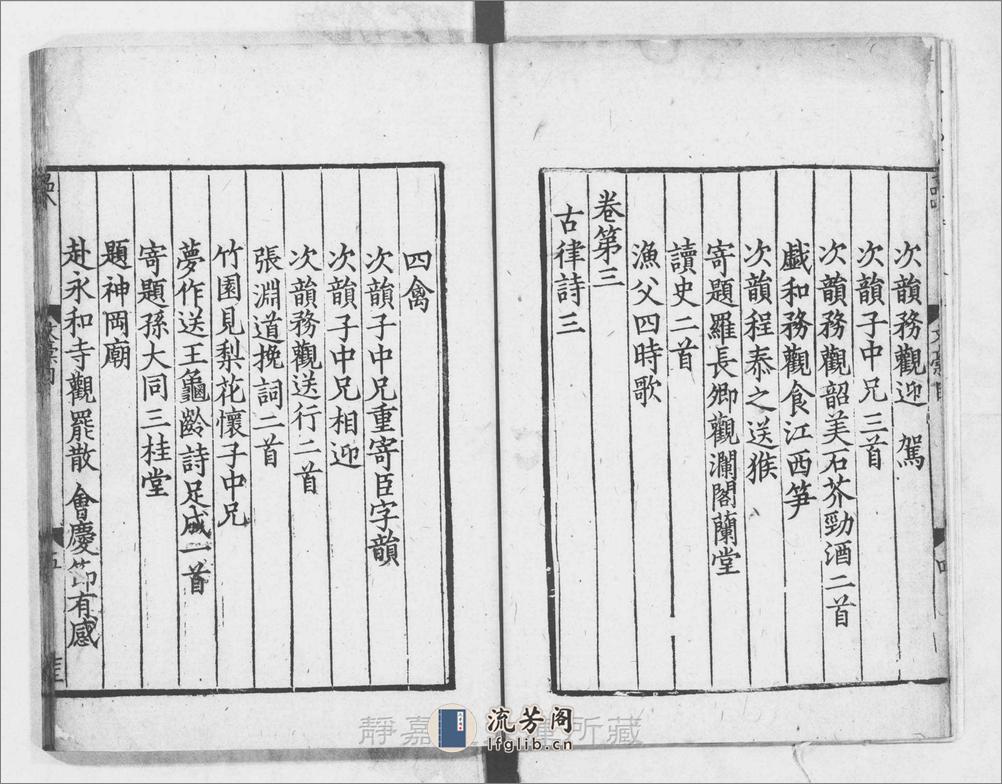 次韻務觀迎　駕
次韻子中兄三首
次韻務觀韶美石芥勁酒二首
戲和務觀食江西笋
次韻程泰之送猴
寄題羅長卿觀瀾閣蘭堂
讀史二首
漁父四時歌
卷第三
古律詩三
四禽
次韻子中兄重寄臣字韻
次韻子中兄相迎
次韻務觀送行二首
張淵道挽詞二首
竹園見梨花懷子中兄
夢作送王龜齡詩足成一首
寄題孫大同三桂堂
題神岡廟
赴永和寺觀罷散　會慶節有感
五
靜嘉 所藏
流芳阁
lfglib.cn